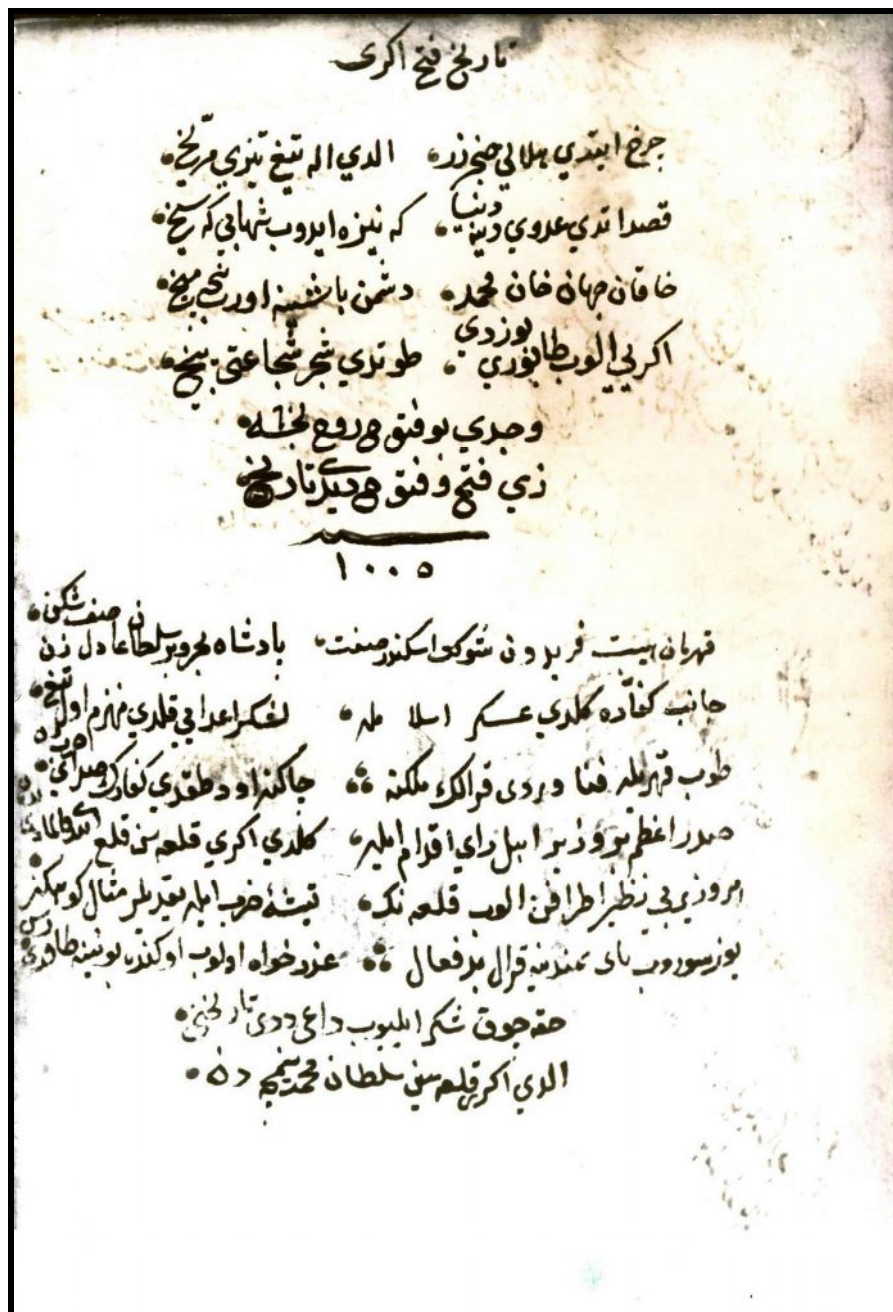 تاريخ فتح اكرى
چرخ ايتدي هلالي خنجر زر الدي اله تيغ تيزي مريخ
قصد اتدي عدوي دينه دنيا كه نيزه ايدوب شهابي كه سيخ
خاقان جهان خان محمد دشمن باشينه اورنجه ميخ
اكري الوب طابوري بوزدي طوتدي شجر شجاعتي بيخ
وجدي بو فتوحه روح بخشه
زي فتح و فتوح ديدى تاريخ
سنه
١٠٠٥
قهرمان هيبت فريدون شوكت اسكندر صفت پادشاه بحر وبر سلطان عادل صف شكن
جانب كفاره كلدي عسكر اسلام له لشكر اعدايي قلدي منهزم اول تيغ
طوپ قهريله فنا ويردى قرالك ملكنه اود كفارك
صدر اعظم بر وزير اهل راي اقدام ايله كلدي اكري قلعه سن قلع
بي نظير اطرافن الوب قلعه نك تيشهٔ ضرب ايله مثال كوهكن
يوز سوروب پاى سمندينه قرال بدفعال عذرخواه اولوب اوكنده بوينينه طاقدي رسن
حقه چوق شكر ايليوب داعى ددى تاريخنى
الدي اكرى قلعه سين سلطان محمد